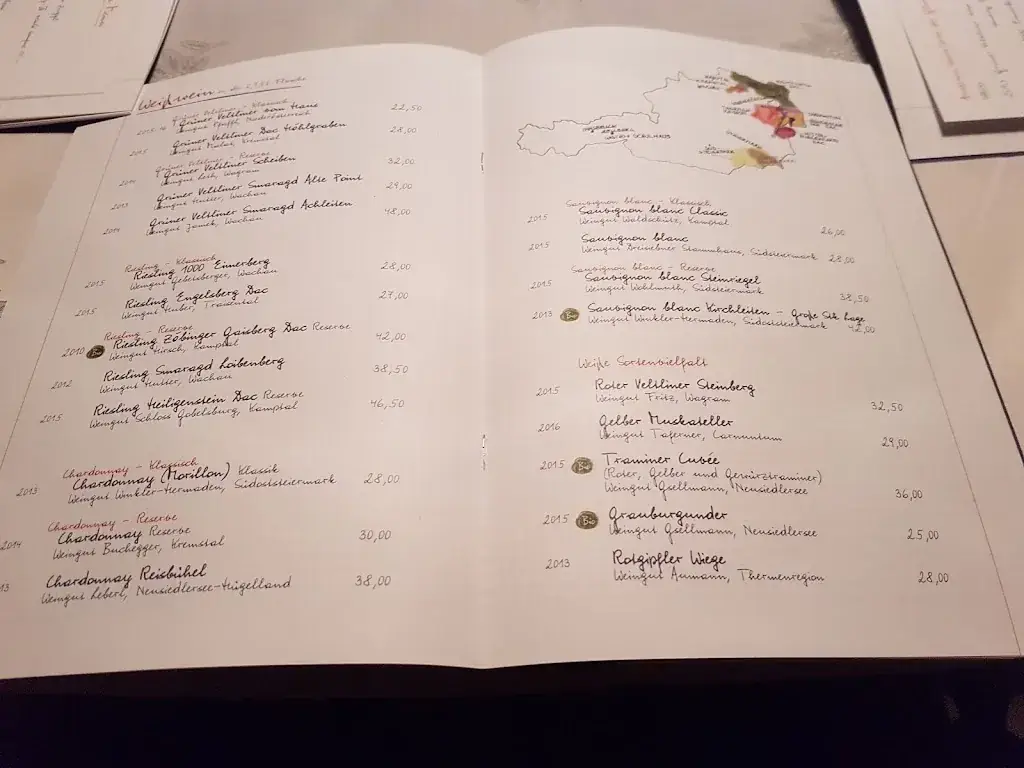 Weißwein in der 0,75l Flasche
Grüner Veltliner - Klassisch
Grüner Veltliner vom Haus 22,50
Weingut Pfaffl, Niederösterreich
2015 Grüner Veltliner Dac Höhlgraben 28,00
Weingut Malat, Kremstal
Grüner Veltliner - Reserve
2014 Grüner Veltliner Scheiben 32,00
Weingut Leth, Wagram
2013 Grüner Veltliner Smaragd Alte Point 29,00
Weingut Hutter, Wachau
2014 Grüner Veltliner Smaragd Achleiten 48,00
Weingut Jamek, Wachau
Riesling - Klassisch
2015 Riesling 1000 Eimerberg 28,00
Weingut Gebelsberger, Wachau
2015 Riesling Engelsberg Dac 27,00
Weingut Huber, Traisental
Riesling - Reserve
2010 Bio Riesling Zöbinger Gaisberg Dac Reserve 42,00
Weingut Hirsch, Kamptal
2012 Riesling Smaragd Loibenberg 38,50
Weingut Hutter, Wachau
2015 Riesling Heiligenstein Dac Reserve 46,50
Weingut Schloss Gobelsburg, Kamptal
Chardonnay - Klassisch
2013 Chardonnay (Morillon) Klassik 28,00
Weingut Winkler-Hermaden, Südoststeiermark
Chardonnay - Reserve
2014 Chardonnay Reserve 30,00
Weingut Buchegger, Kremstal
13 Chardonnay Reisbühel 38,00
Weingut Leberl, Neusiedlersee-Hügelland
Sauvignon blanc - Klassisch
2015 Sauvignon blanc Classic 26,00
Weingut Waldschütz, Kamptal
2015 Sauvignon blanc 28,00
Weingut Dreisiebner Stammhaus, Südsteiermark
Sauvignon blanc - Reserve
2015 Sauvignon blanc Steinriegel 38,50
Weingut Wohlmuth, Südsteiermark
2013 Bio Sauvignon blanc Kirchleiten - Große Stk Lage 42,00
Weingut Winkler-Hermaden, Südoststeiermark
Weiße Sortenvielfalt
2015 Roter Veltliner Steinberg 32,50
Weingut Fritz, Wagram
2016 Gelber Muskateller 29,00
Weingut Taferner, Carnuntum
2015 Bio Traminer Cuvée
(Roter, Gelber und Gewürztraminer)
Weingut Gsellmann, Neusiedlersee 36,00
2015 Bio Grauburgunder
Weingut Gsellmann, Neusiedlersee 25,00
2013 Rotgipfler Wiege
Weingut Aumann, Thermenregion 28,00